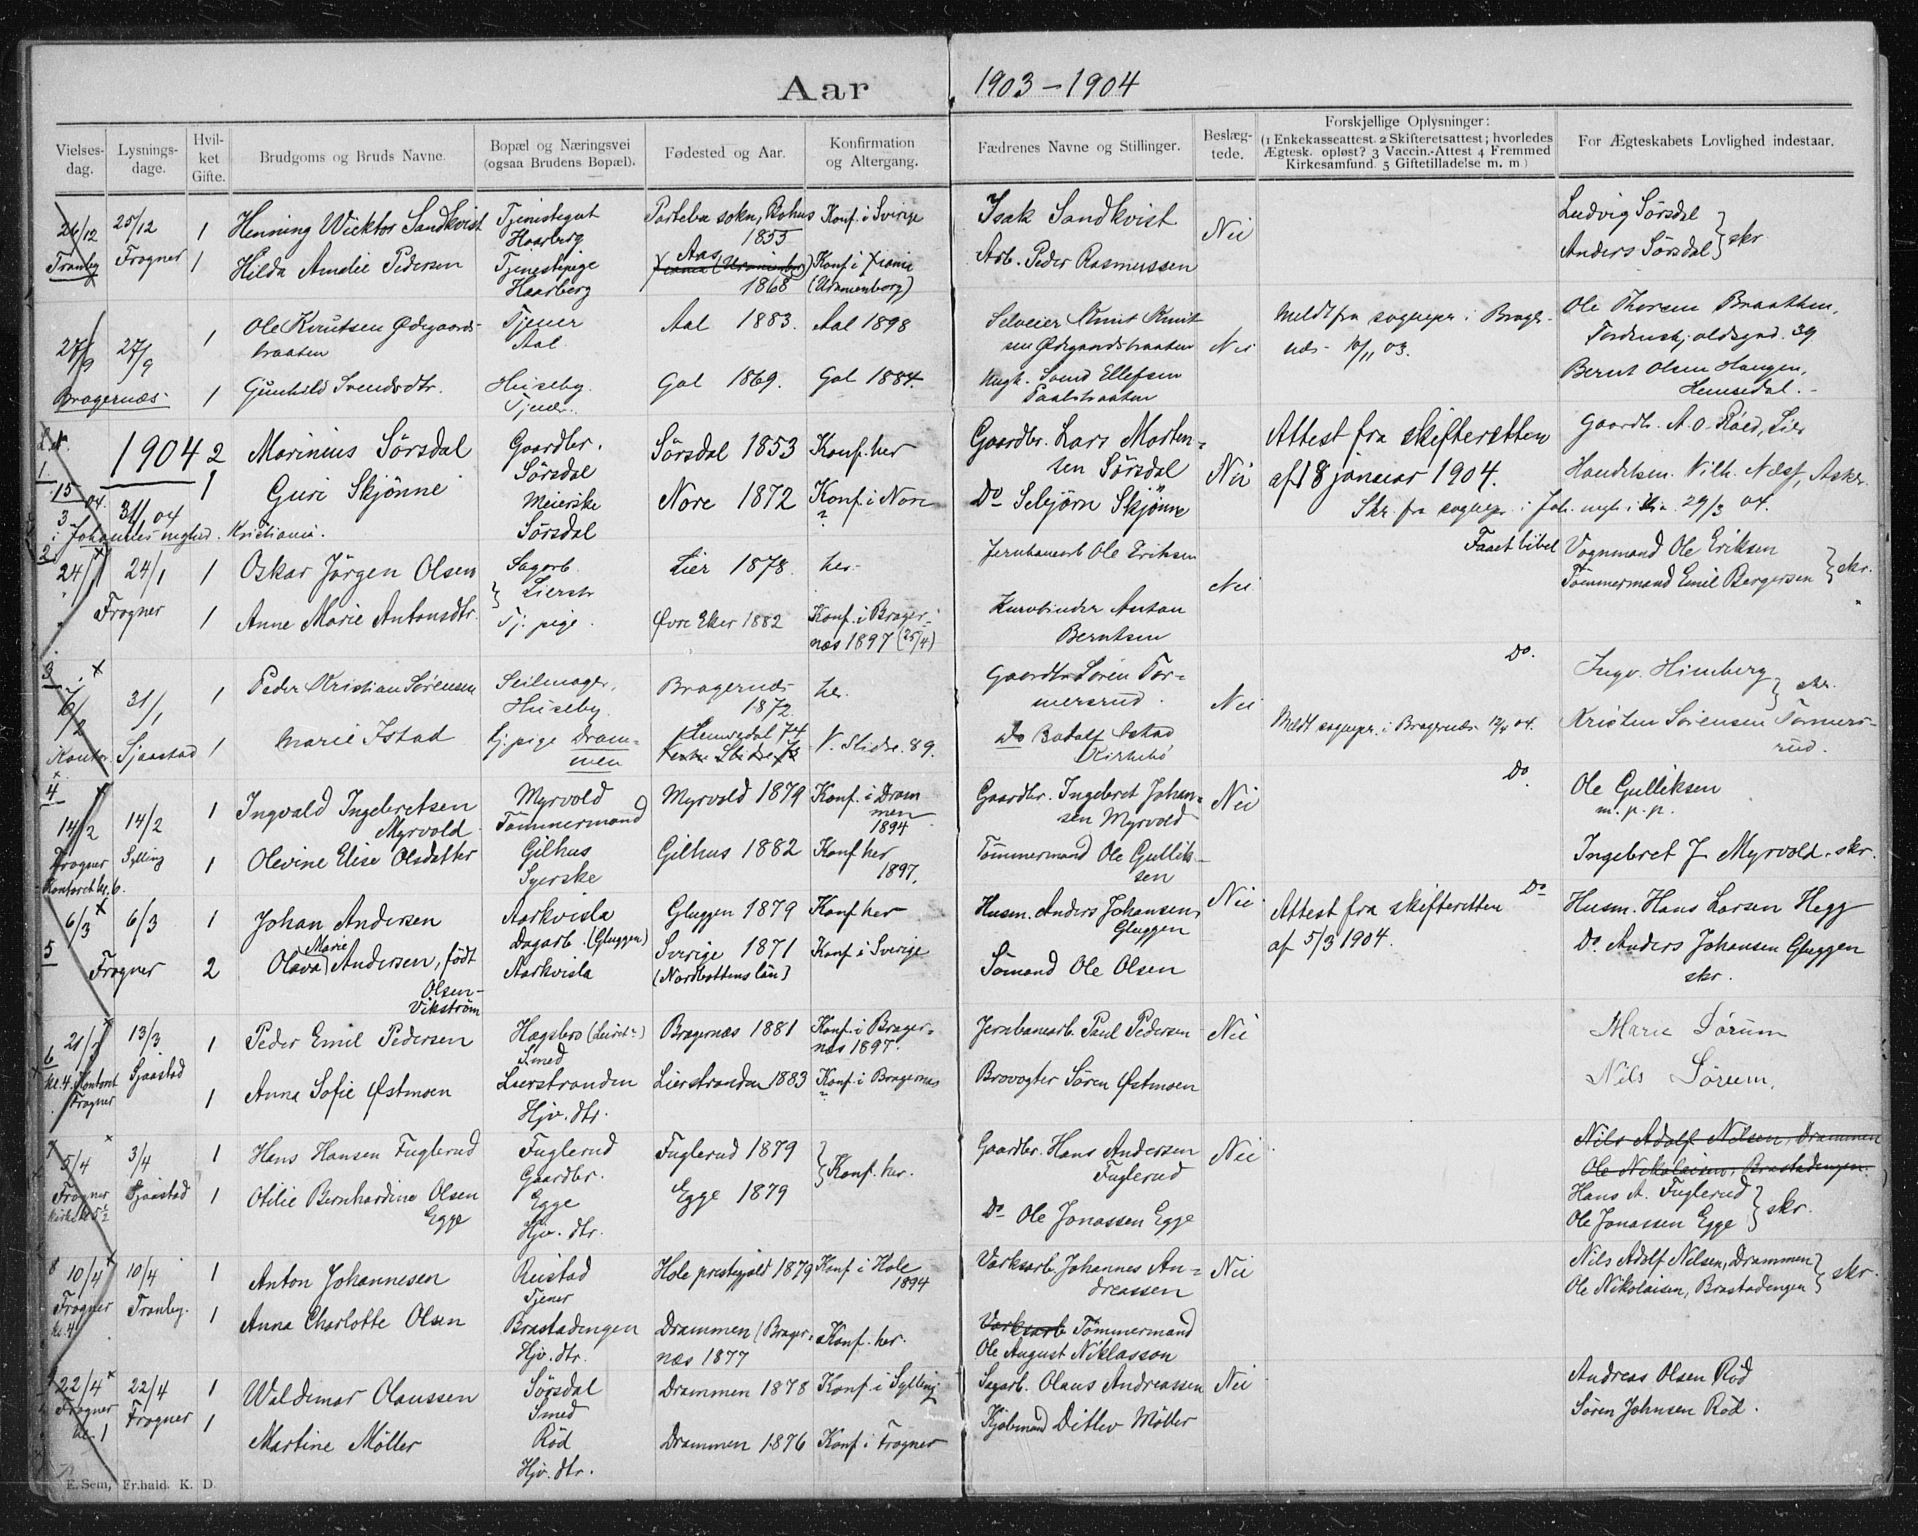 Aar 1903-1904
Vielses-dag. Lysnings-dage. Hvil-ket Gifte. Brudgoms og Bruds Navne. Bopæl og Næringsvei (ogsaa Brudens Bopæl). Fødested og Aar. Konfirmation og Altergang. Fædrenes Navne og Stillinger. Beslæg-tede. Forskjellige Oplysninger: (1 Enkekasseattest. 2 Skifteretsattest; hvorledes Ægtesk. opløst? 3 Vaccin.-Attest 4 Fremmed Kirkesamfund. 5 Giftetilladelse m. m.) For Ægteskabets Lovlighed indestaar.
26/12 25/12 1 Henning Wiktor Sandkvist Tjenestegut Haarberg sokn, Bohus 1855 Konf. i Sverige Isak Sandkvist Nei Ludvig Sørsdal
Tranby Frogner 1 Hilda Amelie Pedersen Tjenestepige Haarberg Aas 1868 Konf. i Xiania (Uranienborg) Arb. Peder Rasmussen Anders Sørsdal } skr
27/9 27/9 1 Ole Knutsen Ødegaards-braaten Tjener Aal Aal 1883. Aal 1898 Selveier Knut Knut-sen Ødegaardsbraaten Nei Meldt fra sognepr. i Brager-næs 10/11 03. Ole Thorsen Braathen, Tordenskjoldsgad. 39
Bragernæs 1 Gunhild Svendsdtr. Huseby. Tjener. Gol 1869. Gol 1884. Ungk. Svend Ellefsen Bernt Olsen Haugen, Hemsedal.
1. 1904 2 Marinius Sørsdal Gaardbr. Sørsdal Sørsdal 1853 Konf. her Gaardbr. Lars Morten-sen Sørsdal Nei Attest fra skifteretten af 18 januar 1904. Gaardb. A. O. Roed, Lier
15/3 04 31/1 04 1 Guri Skjønne Meierske Sørsdal Nore 1872 Konf. i Nore ? Do Sebjørn Skjønne Skr. fra sognepr. i Joh. mgh. i Kra. 29/3 04. Handelsm. Vilh. Næss, Asker
i Johannes mghed. Kristiania.
2. 24/1 24/1 1 Oskar Jørgen Olsen Sagarb. Lierstr Lier 1878. her. Jernbanearb Ole Eriksen Nei Faaet bibel Vognmand Ole Eriksen
Frogner 1 Anne Marie Antonsdtr. Tj. pige. Øvre Eker 1882 Konf. i Brager-næs 1897 (25/4) Kurvbinder Anton Berntsen Tømmermand Emil Bergersen } skr.
3. 31/1 1 Peder Kristian Sørensen Seilmager, Huseby. Bragernæs 1872. her. Gaardbr Søren Tor-mersrud. Nei Do. Ingv. Himberg } skr.
Kontor Sjaastad 1 Marie Istad tj. pige Dram-men Hemsedal 74 V. Slidre. 89. Do Meldt sognepr. i Bragernæs 04. Kristen Sørensen Tormers-rud.
4 14/2 14/2 1 Ingvald Ingebretsen Myrvold Myrvold Tømmermand Myrvold 1879 Konf. i Dram men 1894 Gaardbr. Ingebret Johan-sen Myrvold Nei Do Ole Gulliksen m. p. p.
Frogner Sylling 1 Olevine Elise Olsdatter Gilhus Syerske Gilhus 1882 Konf her 1897. Tømmermand Ole Gullik-sen Ingebret J Myrvold. skr.
Kontoret kl. 6.
5 6/3 6/3 1 Johan Andersen Aarkvisla Dagarb. (Gluggen) Gluggen 1879 Konf her Husm. Anders Johansen, Gluggen Nei Attest fra skifteretten af 5/3 1904. Do Husm. Hans Larsen Hegg
Frogner 2 Olava Marie Andersen, født Olsen-Vikstrøm Aarkvisla Sverige 1871 (Nordbottens län) Konf. i Sverige Sømand Ole Olsen Do. Anders Johansen Gluggen skr.
6 21/3 13/3 1 Peder Emil Pedersen Hagsbro Smed Bragernæs 1881 Konf. i Brager-næs 1897. Jernbanearb. Paul Pedersen Nei Marie Sørum
kl. 4. Kontoret Frogner Sjaastad 1 Anna Sofie Østmoen Lierstranden Hjv. dtr. Lierstranden 1883 Konf. i Bragernæs ? Brovogter Søren Østmoen Nils Sørum.
7 5/4 3/4 1 Hans Hansen Fuglerud Fuglerud Gaardbr. Fuglerud 1879 } Konf. her. Gaardbr. Hans Andersen Fuglerud Nei Nils Adolf Nilsen, Drammen Ole Nikolaisen, Brastadengen.
Frogner kirke kl 5½ Sjaastad 1 Otilie Bernhardine Olsen Egge Egge Hjv. dtr. Egge 1879 Do Ole Jonassen Egge Hans A. Fuglerud Ole Jonassen Egge } skr.
8 10/4 10/4 1 Anton Johannesen Reistad Tjener Hole prestegjeld 1879 Konf. i Hole 1894 Værksarb. Johannes An-dreassen Nei Nils Adolf Nilsen, Drammen
Frogner kl. 4 Tranby. 1 Anna Charlotte Olsen Brastadengen Hjv. dtr. Drammen (Brager-næs 1877 Konf. her. Værksarb Tømmermand Ole August Niklasson Ole Nikolaisen, Brastadengen } skr.
22/4 22/4 1 Waldimar Olaussen Sørsdal Smed Drammen 1878 Konf. i Sylling Sagarb. Olaus Andreassen Nei Andreas Olsen Rød
Frogner kl. 1 Frogner 1 Martine Møller Rød Hjv. dtr. Drammen 1876 Konf. i Frogner Kjøbmand Ditlev Møller Søren Johnsen Rød.
E. Sem, Fr.hald. K. D.